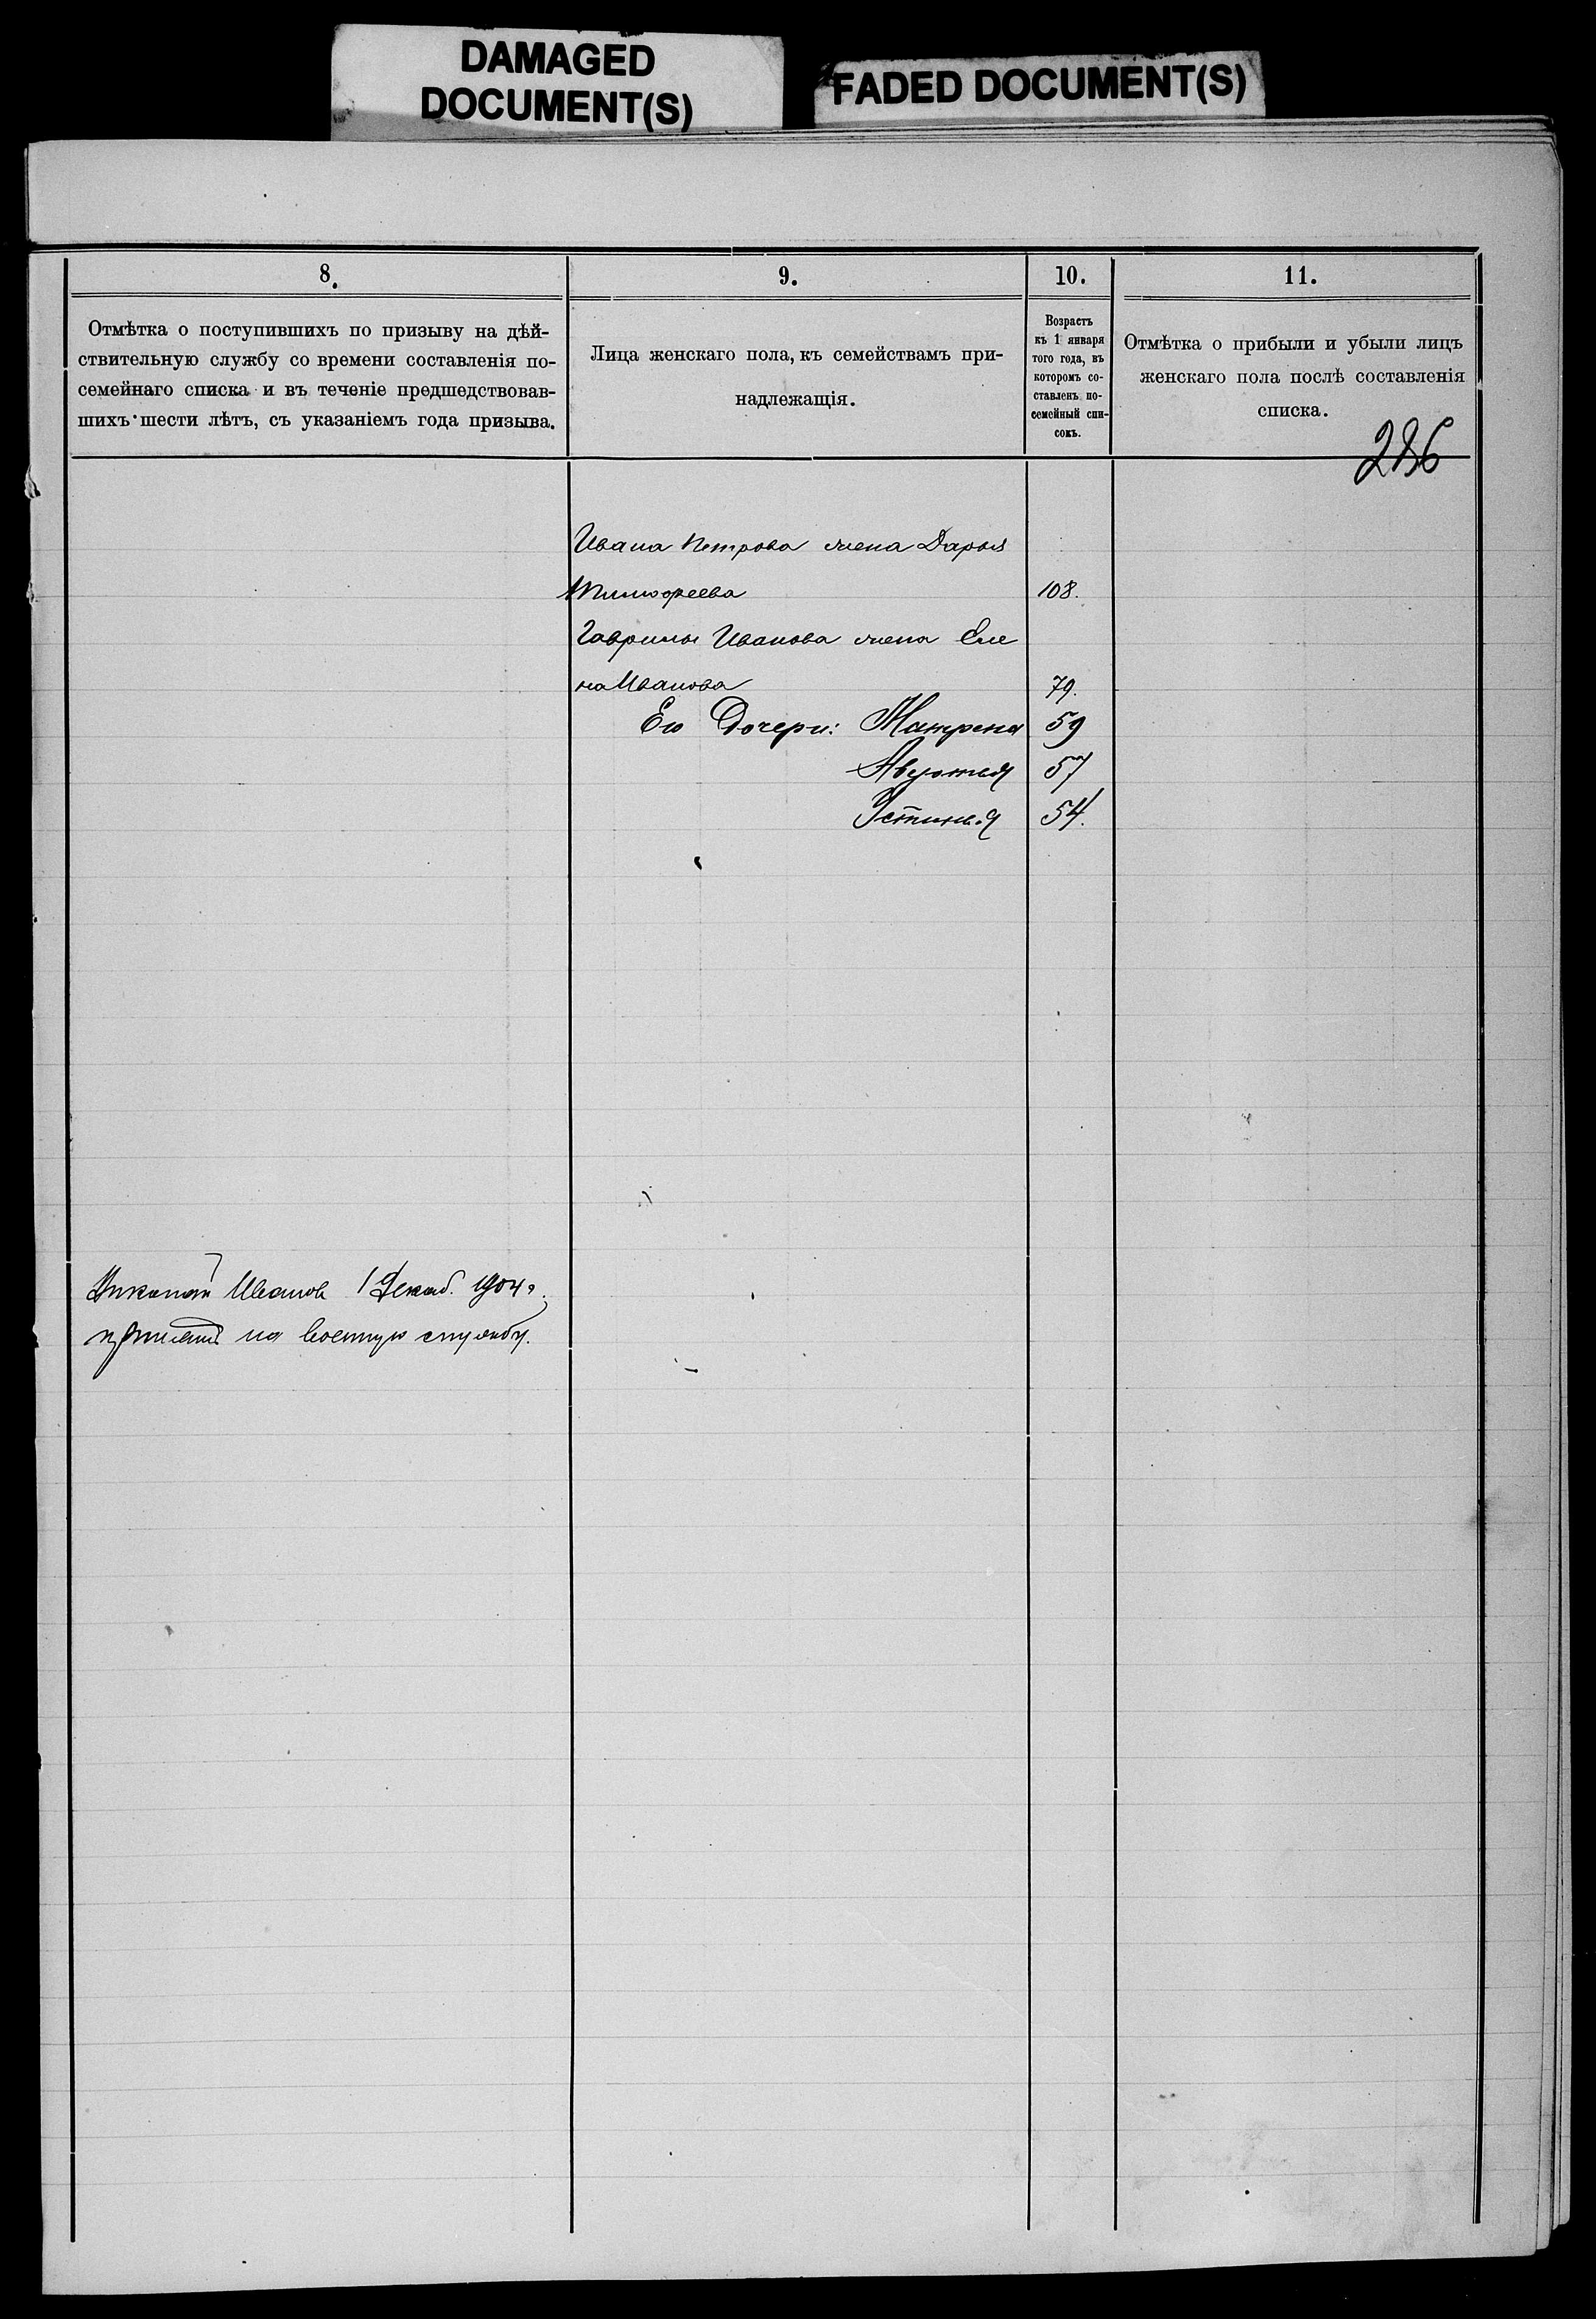 DAMAGED
DOCUMENT(S)
FADED DOCUMENT(S)
8.
Отмѣтка о поступившихъ по призыву на дѣй-
ствительную службу со времени составленія по-
семейнаго списка и въ теченіе предшедствовав-
шихъ шести лѣтъ, съ указаніемъ года призыва.
9.
Лица женскаго пола, къ семействамъ при-
надлежащія.
10.
Возрастъ
къ 1 января
того года, въ
которомъ со-
ставленъ по-
семейный спи-
сокъ.
11.
Отмѣтка о прибыли и убыли лицъ
женскаго пола послѣ составленія
списка.
Ивана Петрова жена Дарья
Тимофеева 108.
Гаврилы Иванова жена Еле
на Иванова 79.
Его Дочери: Матрена 59
Авдотья 57
Устинья 54.
Николай Иванов 1 Декаб. 1904 г.
на военную службу.